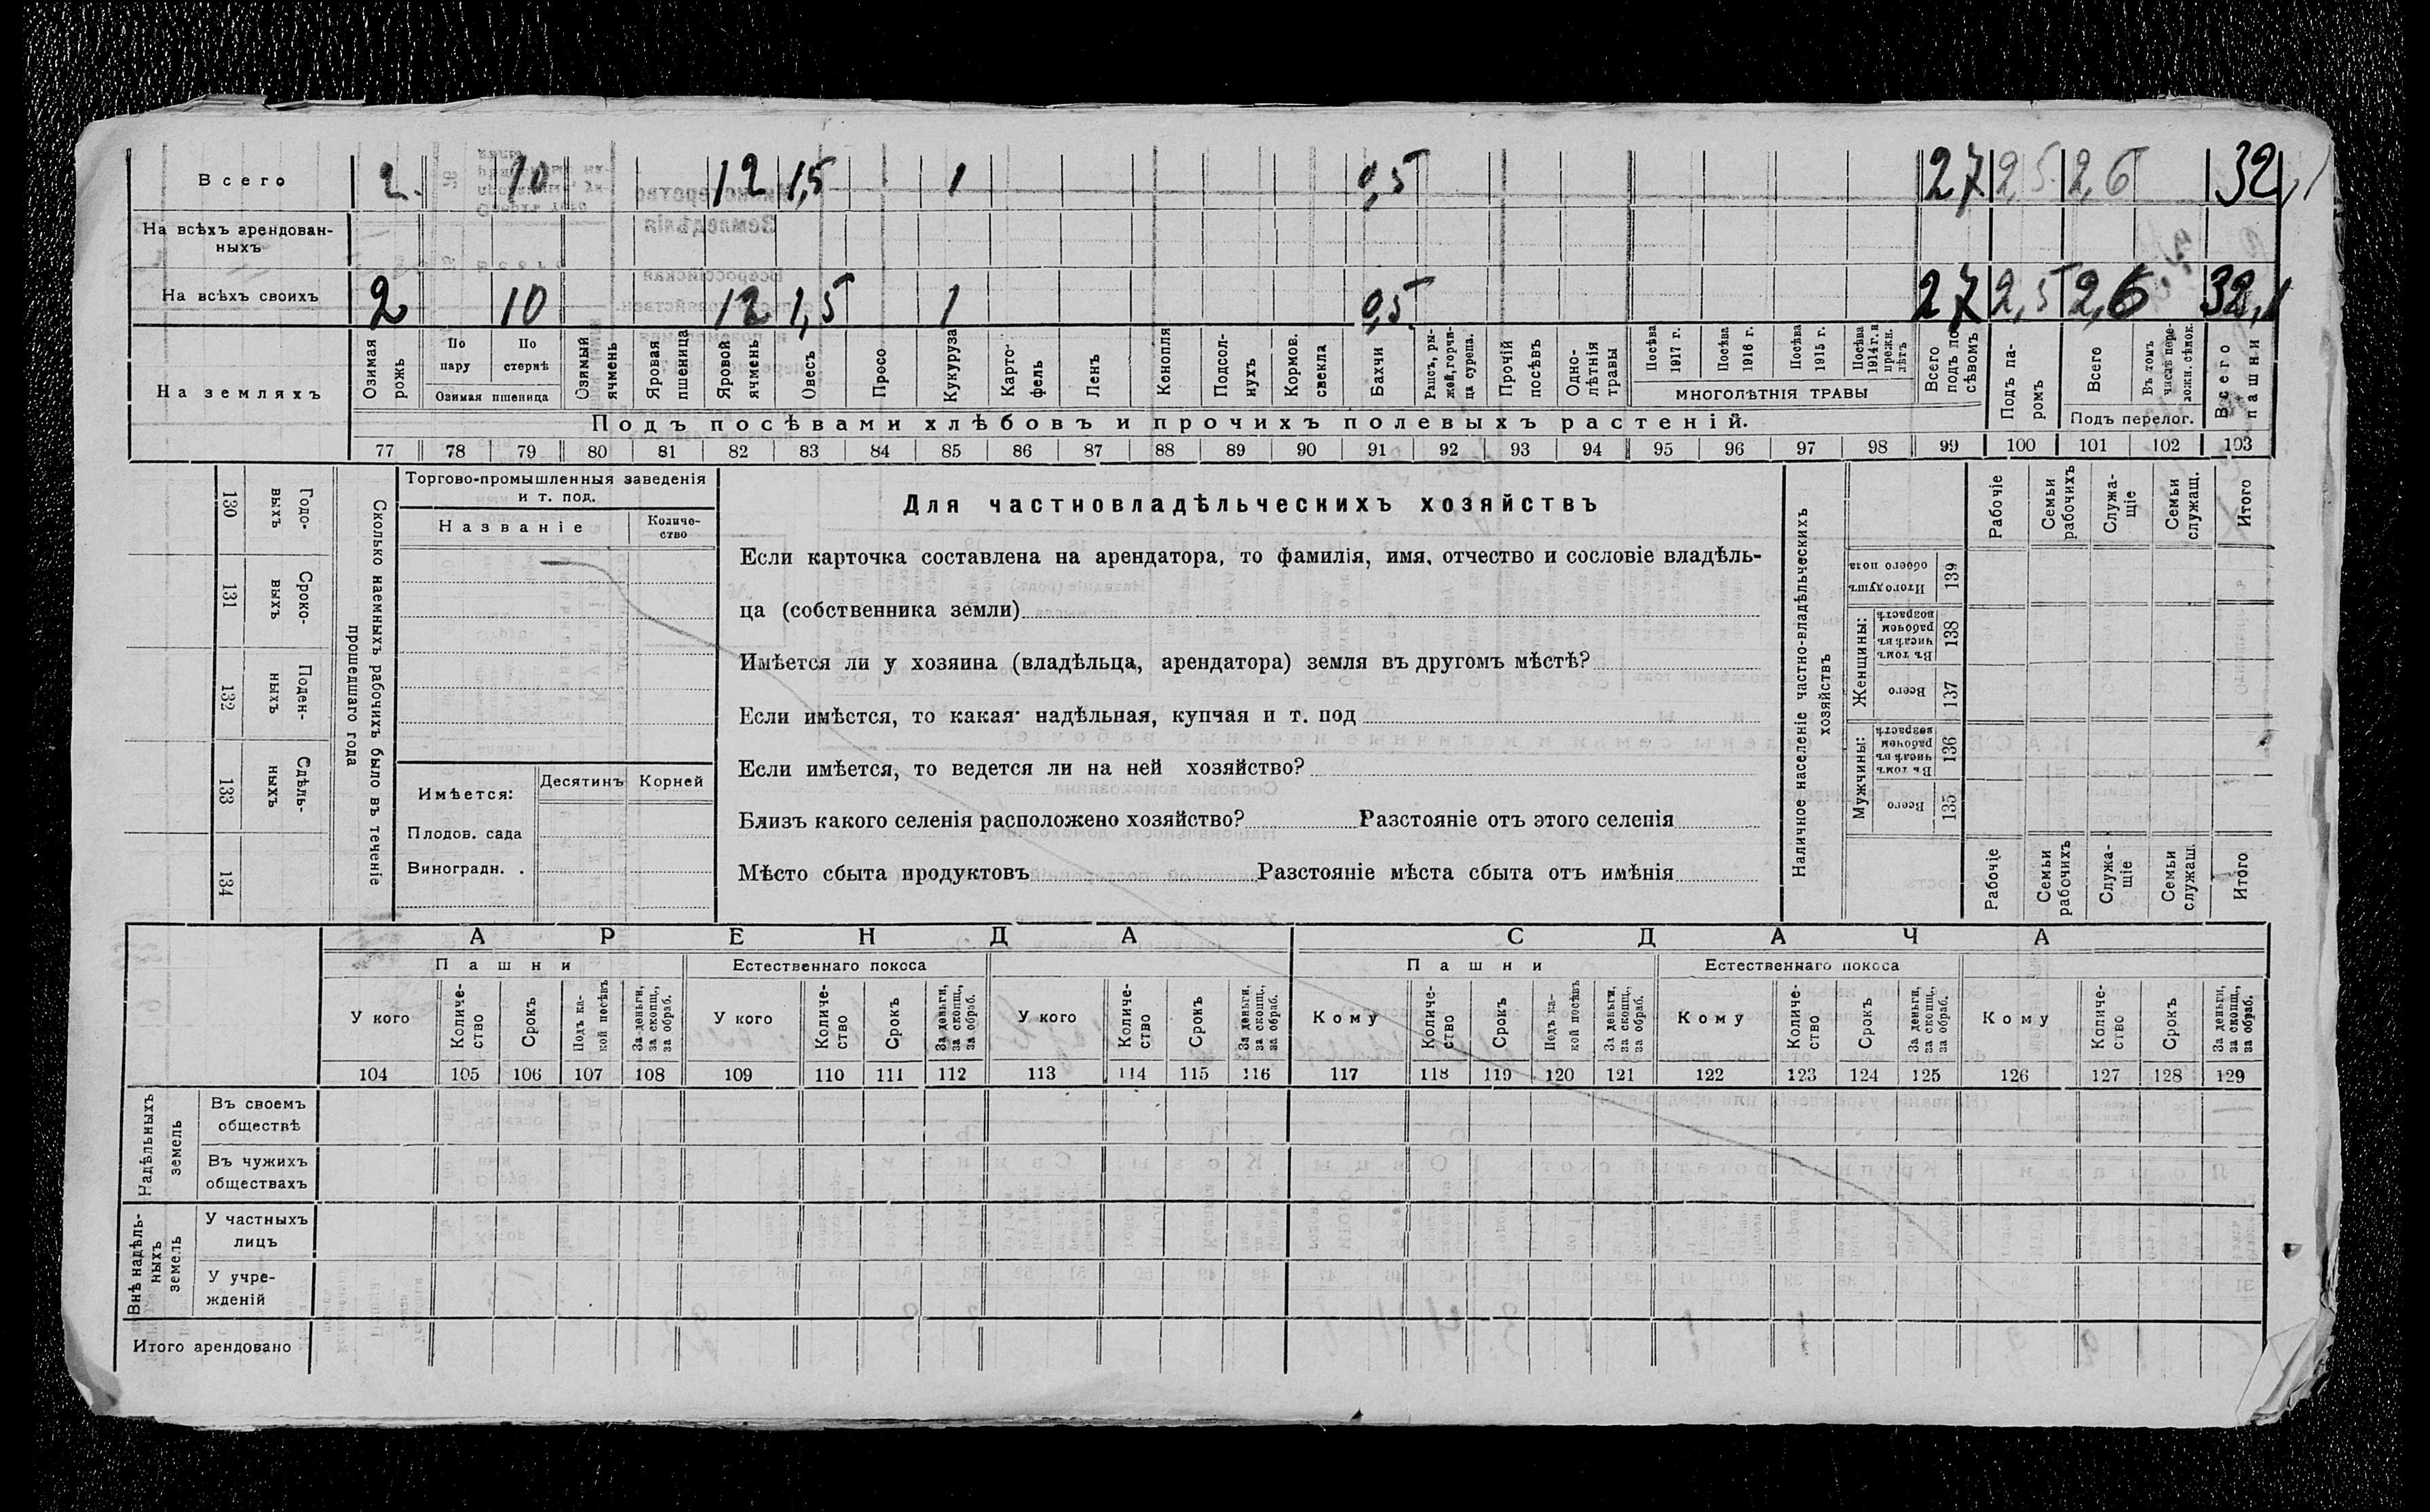 Всего 2. 10 12 1,5 1 0,5 27 2,5 2,6 32,1
На всѣхъ арендован-
ныхъ
На всѣхъ своихъ 2 10 12 1,5 1 0,5 27 2,5 2,6 32,1
На земляхъ
Озимая рожь
По пару
По стернѣ
Озимая пшеница
Озимый ячмень
Яровая пшеница
Яровой ячмень
Овесъ
Просо
Кукуруза
Карто-
фель
Ленъ
Конопля
Подсол-
нухъ
Кормов. свекла
Бахчи
Рапсъ, ры-
жей, горчи-
ца сурепа.
Прочій посѣвъ
Одно-
лѣтнія травы
Посѣва 1917 г.
Посѣва 1916 г.
Посѣва 1915 г.
Посѣва 1914 г. и прежн. лѣтъ
МНОГОЛѢТНІЯ ТРАВЫ
Всего подъ по сѣвомъ
Подъ па-
ромъ
Всего
Въ томъ числѣ пере-
ложн. сѣнок.
Подъ перелог.
Всего пашни
Подъ посѣвами хлѣбовъ и прочихъ полевыхъ растеній.
77 78 79 80 81 82 83 84 85 86 87 88 89 90 91 92 93 94 95 96 97 98 99 100 101 102 103
130 Годо-
выхъ
131 Сроко-
выхъ
132 Поден-
ныхъ
133 Сдѣль-
ныхъ
134
Сколько наемныхъ рабочихъ было въ теченіе
прошедшаго года
Торгово-промышленныя заведенія
и т. под.
Названіе
Количе-
ство
Имѣется:
Десятинъ Корней
Плодов. сада
Виноградн. .
Для частновладѣльческихъ хозяйствъ
Если карточка составлена на арендатора, то фамилія, имя, отчество и сословіе владѣль-
ца (собственника земли)
Имѣется ли у хозяина (владѣльца, арендатора) земля въ другомъ мѣстѣ?
Если имѣется, то какая надѣльная, купчая и т. под
Если имѣется, то ведется ли на ней хозяйство?
Близъ какого селенія расположено хозяйство? Разстояніе отъ этого селенія
Мѣсто сбыта продуктовъ Разстояніе мѣста сбыта отъ имѣнія
Наличное населеніе частно-владѣльческихъ
хозяйствъ
Рабочіе
Семьи рабочихъ
Служа-
щіе
Семьи служащ.
Итого
Итого душъ обоего пола 139
Женщины:
Въ томъ числѣ въ рабочем возрастѣ 138
Всего 137
Мужчины:
Въ томъ числѣ въ рабочем возрастѣ 136
Всего 135
Рабочіе
Семьи рабочихъ
Служа-
щіе
Семьи служащ.
Итого
АРЕНДА
СДАЧА
Пашни
Естественнаго покоса
Пашни
Естественнаго покоса
У кого
Количе-
ство
Срокъ
Подъ ка-
кой посѣвъ
За деньги, за скопщ., за обраб.
У кого
Количе-
ство
Срокъ
За деньги, за скопщ., за обраб.
У кого
Количе-
ство
Срокъ
За деньги, за скопщ., за обраб.
Кому
Количе-
ство
Срокъ
Подъ ка-
кой посѣвъ
За деньги, за скопщ., за обраб.
Кому
Количе-
ство
Срокъ
За деньги, за скопщ., за обраб.
Кому
Количе-
ство
Срокъ
За деньги, за скопщ., за обраб.
104 105 106 107 108 109 110 111 112 113 114 115 116 117 118 119 120 121 122 123 124 125 126 127 128 129
Надѣльныхъ
земель
Въ своемъ
обществѣ
Въ чужихъ
обществахъ
Внѣ надѣль-
ныхъ
земель
У частныхъ
лицъ
У учре-
жденій
Итого арендовано